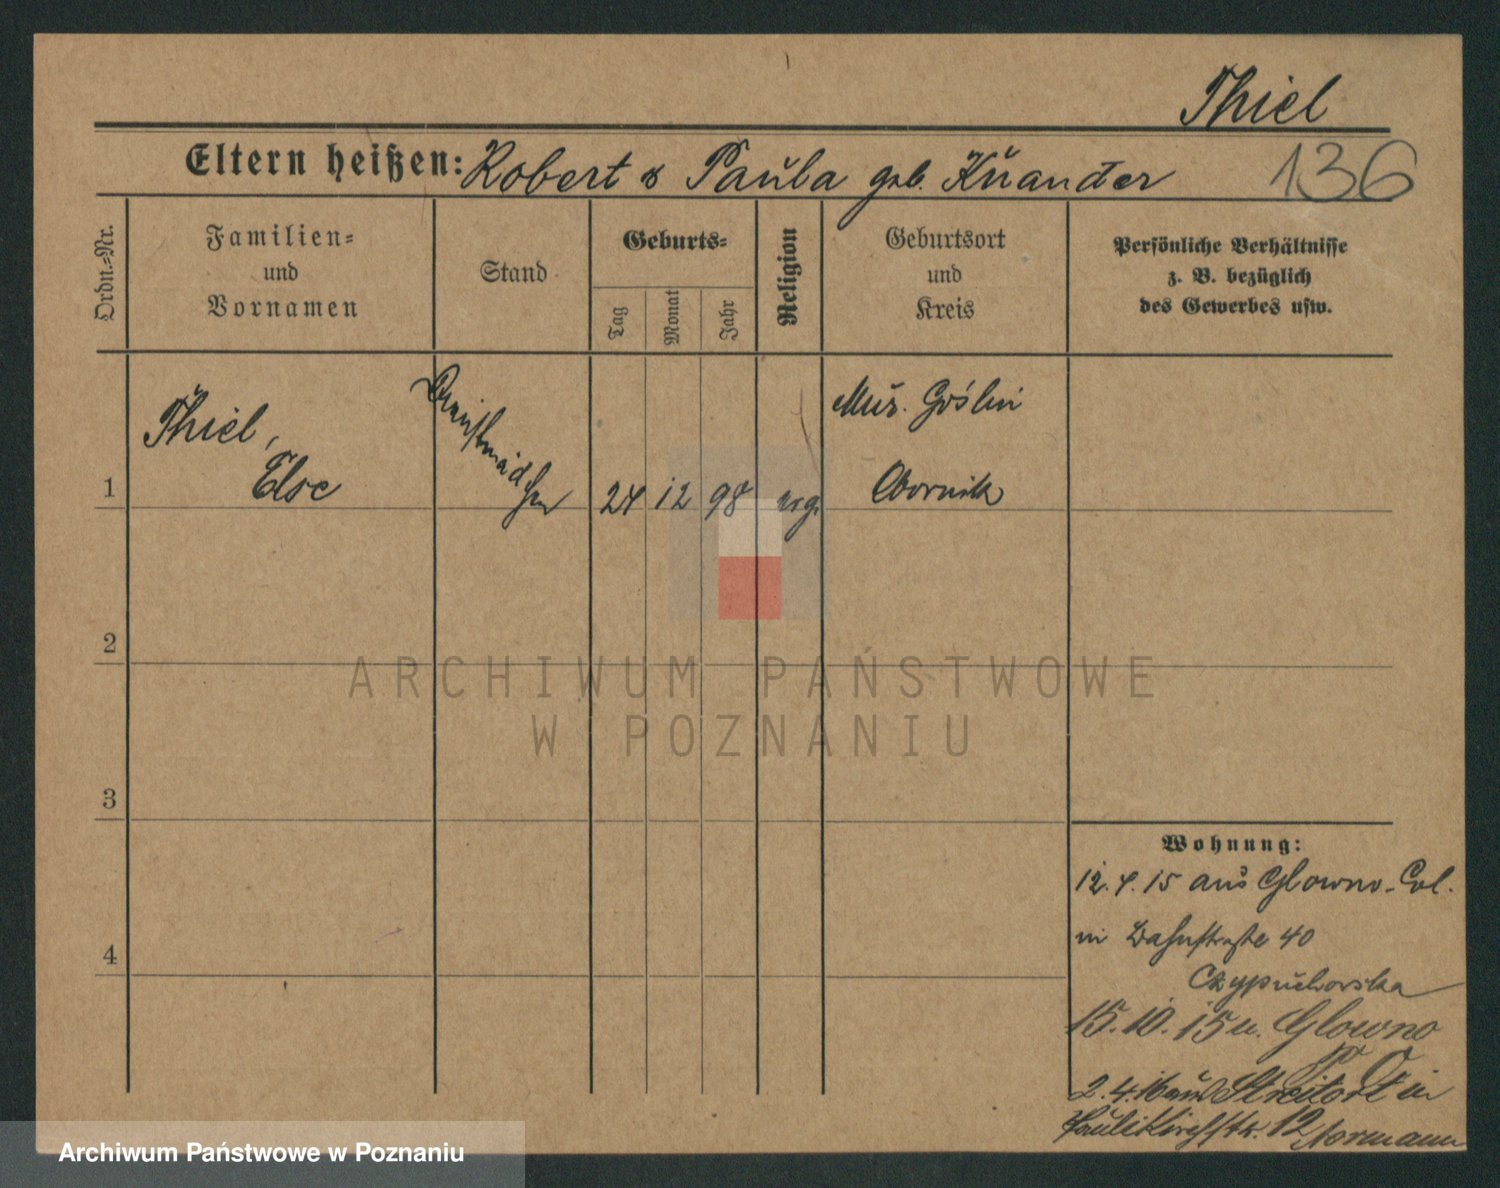 Thiel
Eltern heißen: Robert & Paula geb. Knander
136
Ordn.=Nr.
Familien=
und
Vornamen
Stand
Geburts=
Tag
Monat
Jahr
Religion
Geburtsort
und
Kreis
Persönliche Verhältnisse
z. B. bezüglich
des Gewerbes usw.
1
Thiel,
Else
Dienstmädchen
24 12 98
evg.
Mur. Goślin
Obornik
2
3
4
Wohnung:
12.4.15 aus Glowno-Col.
in Bahnstraße 40
15.10.15 n. Glowno
2.4.16 aus Streitort in
Paulikirchstr. 12 Normann
ARCHIWUM PAŃSTWOWE
W POZNANIU
Archiwum Państwowe w Poznaniu